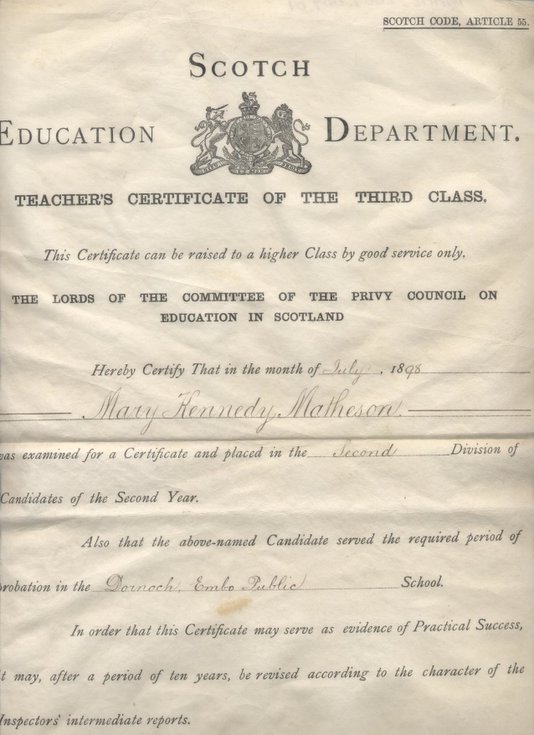 SCOTCH CODE, ARTICLE 55.
SCOTCH
EDUCATION DEPARTMENT.
TEACHER'S CERTIFICATE OF THE THIRD CLASS.
This Certificate can be raised to a higher Class by good service only.
THE LORDS OF THE COMMITTEE OF THE PRIVY COUNCIL ON
EDUCATION IN SCOTLAND
Hereby Certify That in the month of July, 1898
Mary Kennedy Matheson
was examined for a Certificate and placed in the Second Division of
Candidates of the Second Year.
Also that the above-named Candidate served the required period of
probation in the Dornoch, Embo Public School.
In order that this Certificate may serve as evidence of Practical Success,
it may, after a period of ten years, be revised according to the character of the
Inspectors' intermediate reports.